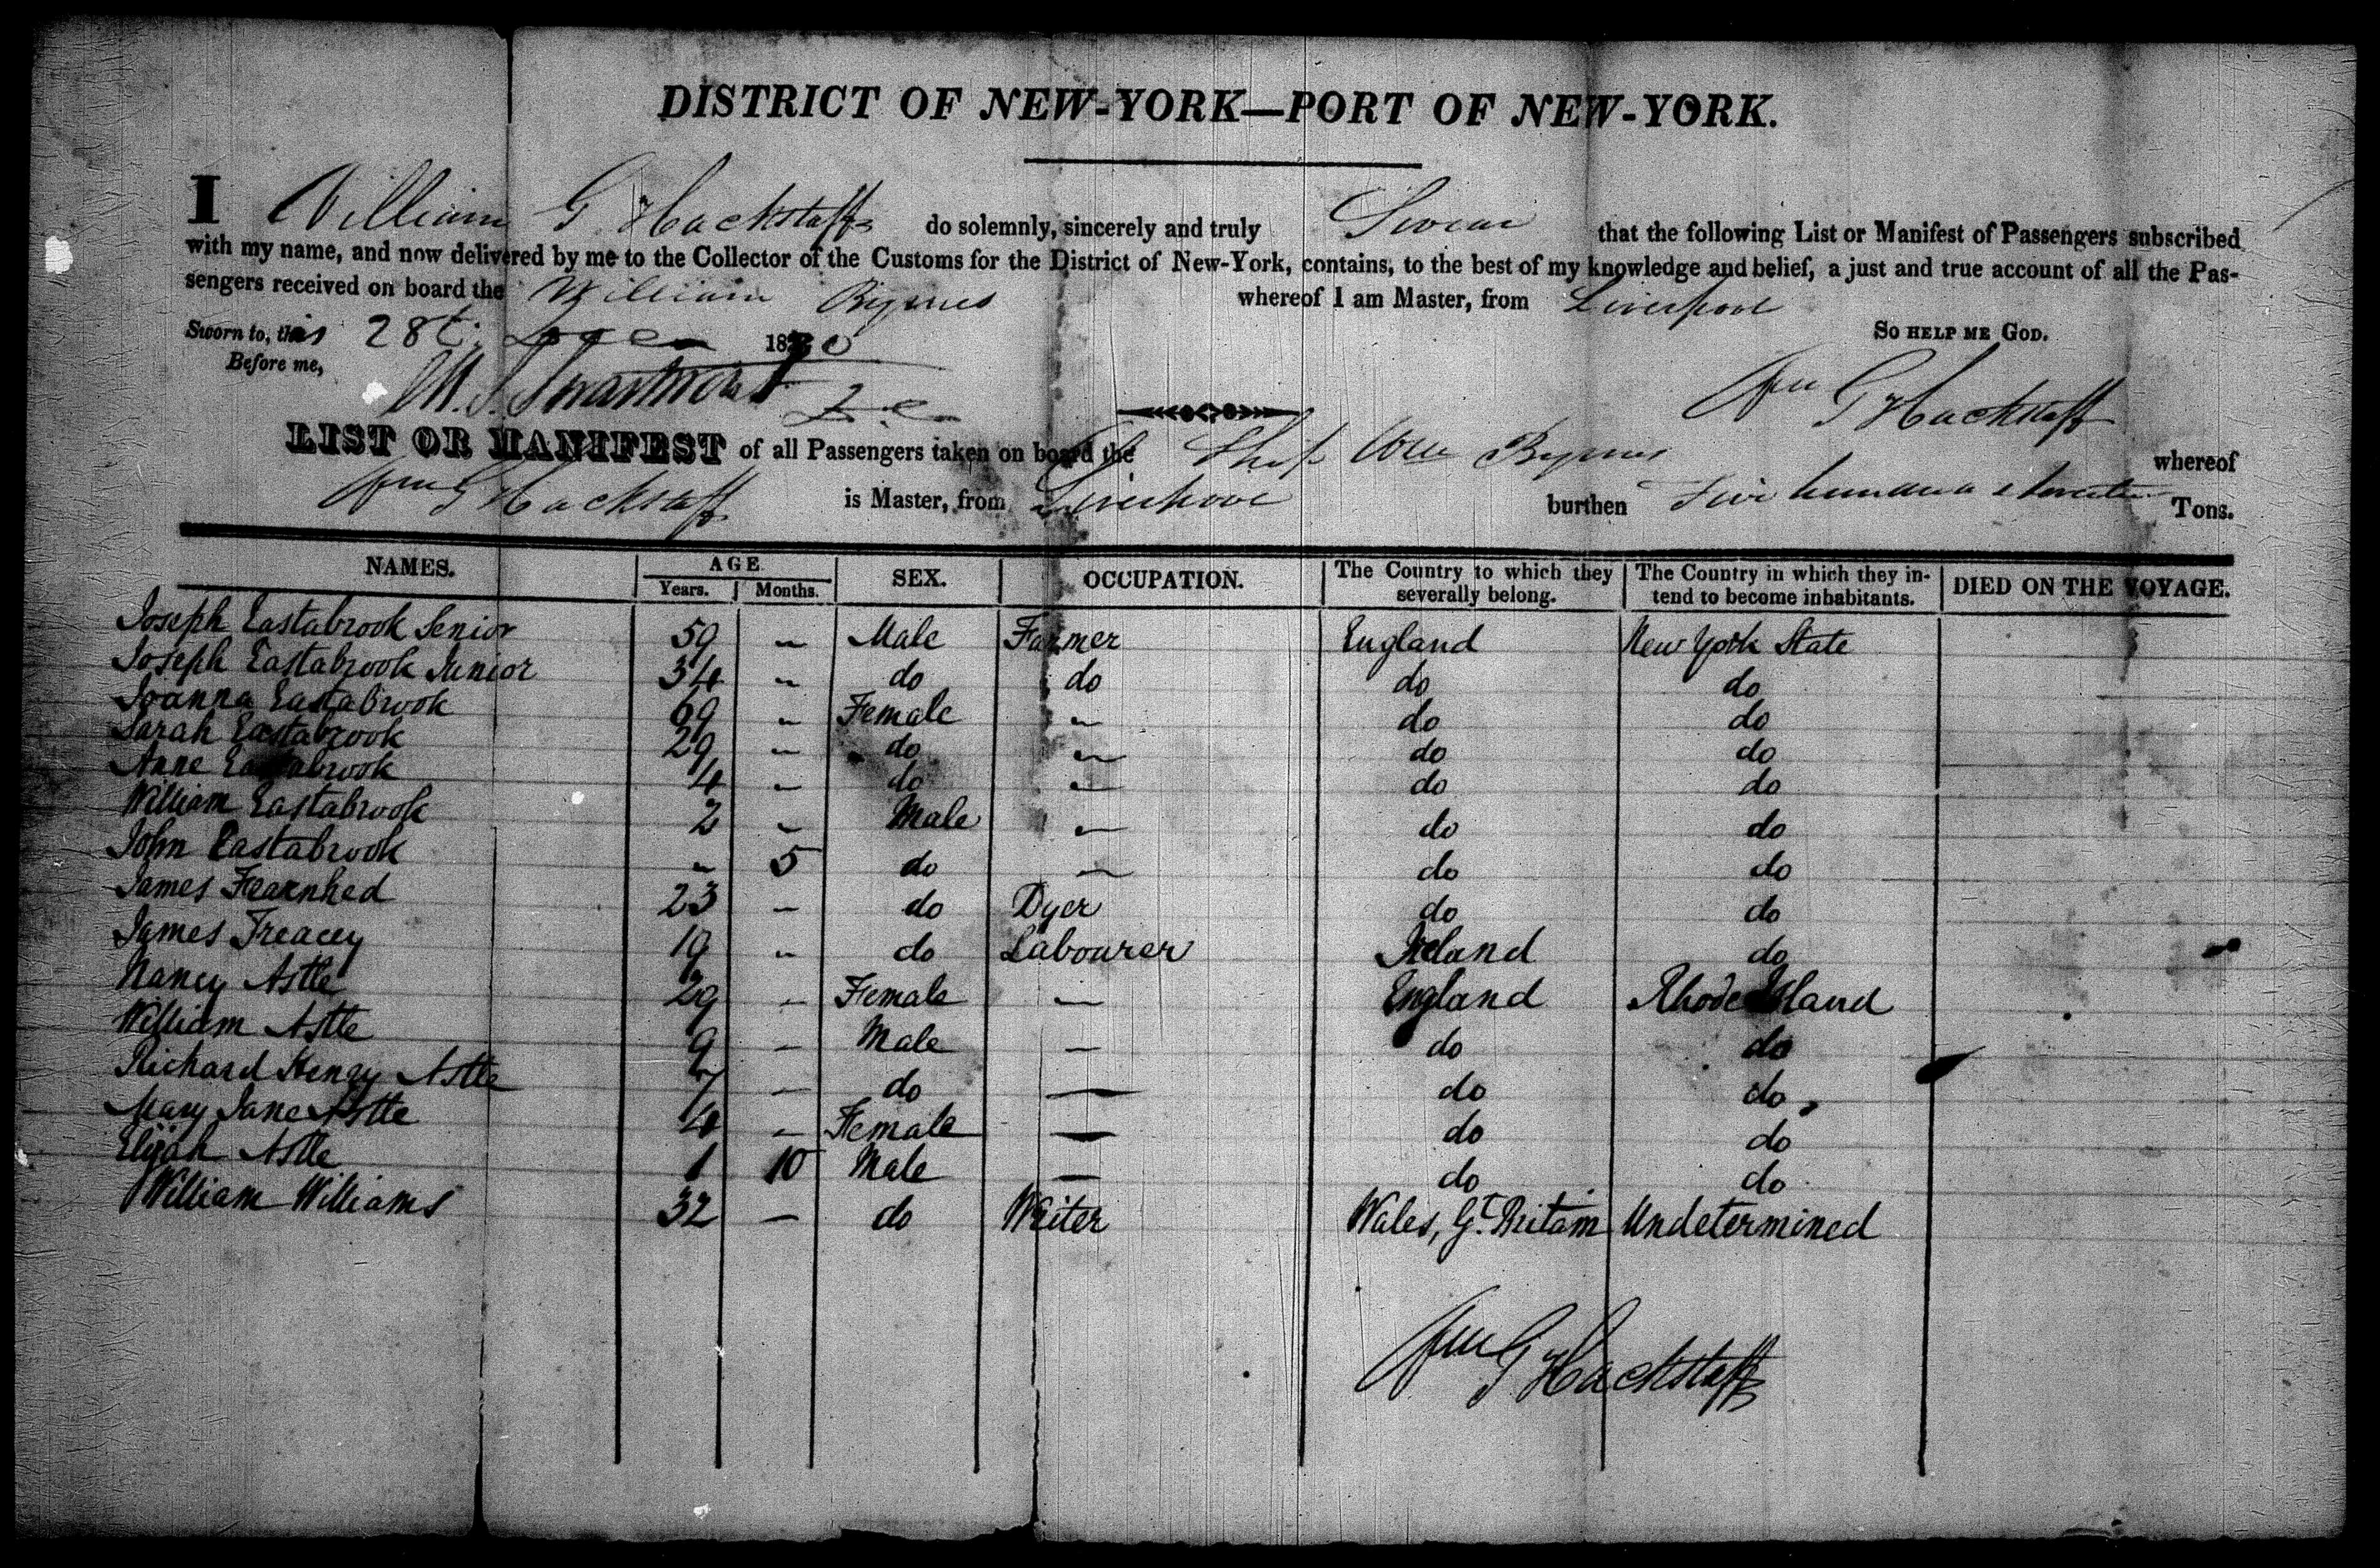 DISTRICT OF NEW-YORK—PORT OF NEW-YORK.
I William G Hackstaff do solemnly, sincerely and truly Swear that the following List or Manifest of Passengers subscribed
with my name, and now delivered by me to the Collector of the Customs for the District of New-York, contains, to the best of my knowledge and belief, a just and true account of all the Pas-
sengers received on board the William Byrnes whereof I am Master, from Liverpool
Sworn to, this 28t 1830 SO HELP ME GOD.
Before me, Wm G Hackstaff
LIST OR MANIFEST of all Passengers taken on board the Ship Wm Byrnes whereof
Wm G Hackstaff is Master, from Liverpool burthen Five hundred & Tons.
NAMES. AGE SEX. OCCUPATION. The Country to which they severally belong. The Country in which they in-tend to become inhabitants. DIED ON THE VOYAGE.
Years. Months.
Joseph Eastabrook Senior 59 " Male Farmer England New York State
Joseph Eastabrook Junior 34 " do do do do
Joanna Eastabrook 69 " Female " do do
Sarah Eastabrook 29 " do " do do
Anne Eastabrook 4 " do " do do
William Eastabrook 2 " Male " do do
John Eastabrook " 5 do — do do
James Fearnhed 23 — do Dyer do do
James Treacey 19 " do Labourer Ireland do
Nancy Astle 29 — Female — England Rhode Island
William Astle 9 — Male — do do
Richard Henry Astle 7 — do — do do
Mary Jane Astle 4 — Female — do do
Elijah Astle 1 10 Male — do do
William Williams 32 — do Writer Wales, Gt. Britain Undetermined
Wm G Hackstaff